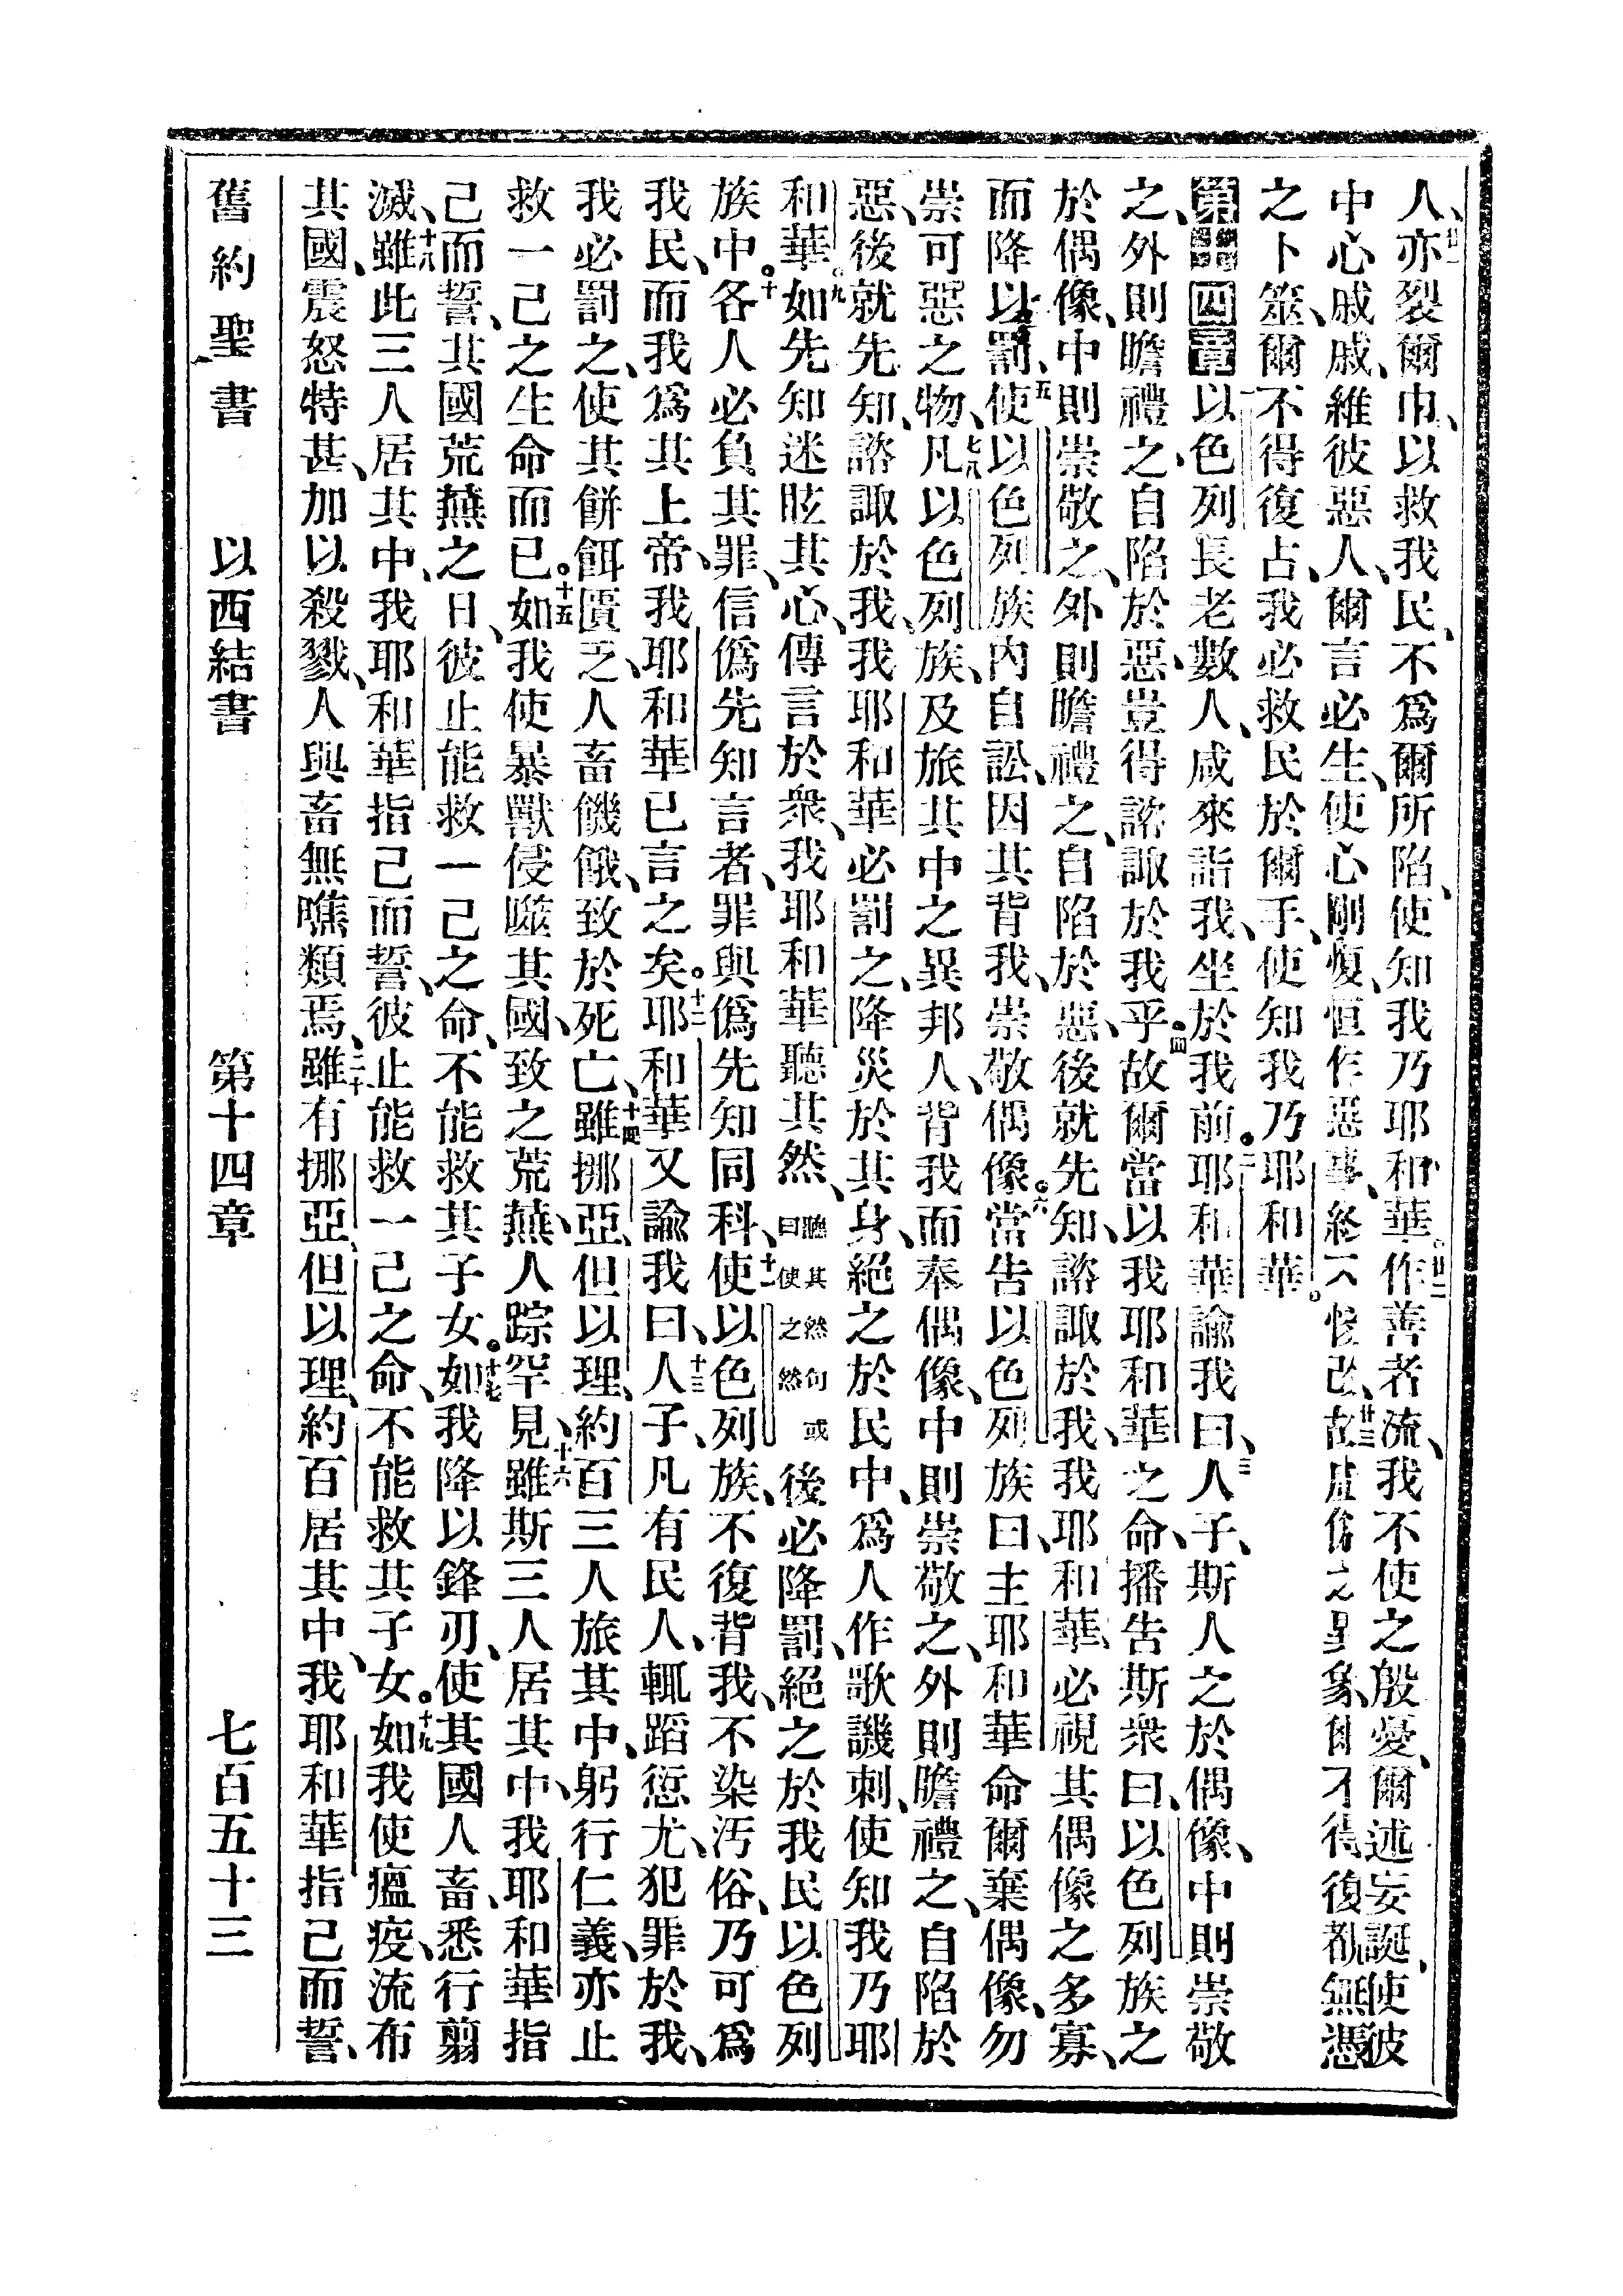 人、廿一亦裂爾巾、以救我民、不爲爾所陷、使知我乃耶和華。廿二作善者流、我不使之殷憂、爾述妄誕、使彼
中心戚戚、維彼惡人、爾言必生、使心剛愎、恒作惡事、終不悛改、廿三故虛僞之異象、爾不得復覩、無憑
之卜筮、爾不得復占、我必救民於爾手、使知我乃耶和華。
第十四章一以色列長老數人、咸來詣我、坐於我前。二耶和華諭我曰、三人子、斯人之於偶像、中則崇敬
之、外則瞻禮之、自陷於惡、豈得諮諏於我乎。四故爾當以我耶和華之命、播告斯衆曰、以色列族之
於偶像、中則崇敬之、外則瞻禮之、自陷於惡、後就先知、諮諏於我、我耶和華、必視其偶像之多寡、
而降以罰、五使以色列族內自訟、因其背我、崇敬偶像。六當告以色列族曰、主耶和華命爾棄偶像、勿
崇可惡之物、七凡以色列族、及旅其中之異邦人、背我而奉偶像、中則崇敬之、外則瞻禮之、自陷於
惡、後就先知、諮諏於我、我耶和華必罰之、八降災於其身、絕之於民中、爲人作歌譏刺、使知我乃耶
和華。九如先知迷眩其心、傳言於衆、我耶和華聽其然、聽其然句或曰使之然後必降罰、絕之於我民以色列
族中。十各人必負其罪、信僞先知言者、罪與僞先知同科、十一使以色列族、不復背我、不染汚俗、乃可爲
我民、而我爲其上帝、我耶和華已言之矣。十二耶和華又諭我曰、十三人子、凡有民人、輒蹈愆尤、犯罪於我、
我必罰之、使其餅餌匱乏、人畜饑餓、致於死亡、十四雖挪亞、但以理、約百三人旅其中、躬行仁義、亦止
救一己之生命而已。十五如我使暴獸侵噬其國、致之荒蕪、人踪罕見、十六雖斯三人居其中、我耶和華指
己而誓、其國荒蕪之日、彼止能救一己之命、不能救其子女。十七如我降以鋒刃、使其國人畜、悉行翦
滅、十八雖此三人居其中、我耶和華指己而誓、彼止能救一己之命、不能救其子女。十九如我使瘟疫、流布
其國、震怒特甚、加以殺戮、人與畜無噍類焉、二十雖有挪亞、但以理、約百居其中、我耶和華指己而誓、
舊約聖書　以西結書　第十四章　七百五十三